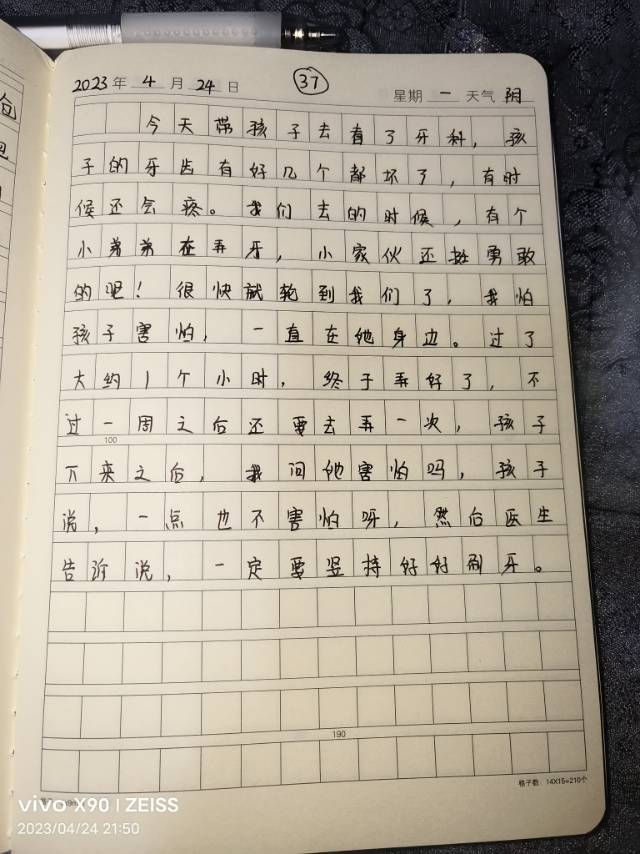 2023年 4月 24日 37 星期 一 天气 阴
今天带孩子去看了牙科,孩
子的牙齿有好几个都坏了,有时
候还会疼。我们去的时候,有个
小弟弟在弄牙,小家伙还挺勇敢
的吧!很快就轮到我们了,我怕
孩子害怕,一直在他身边。过了
大约1个小时,终于弄好了,不
过一周之后还要去弄一次,孩子
100
下来之后,我问他害怕吗,孩子
说,一点也不害怕呀,然后医生
告诉说,一定要坚持好好刷牙。
190
格子数:14X15=210个
vivo X90 | ZEISS
2023/04/24 21:50